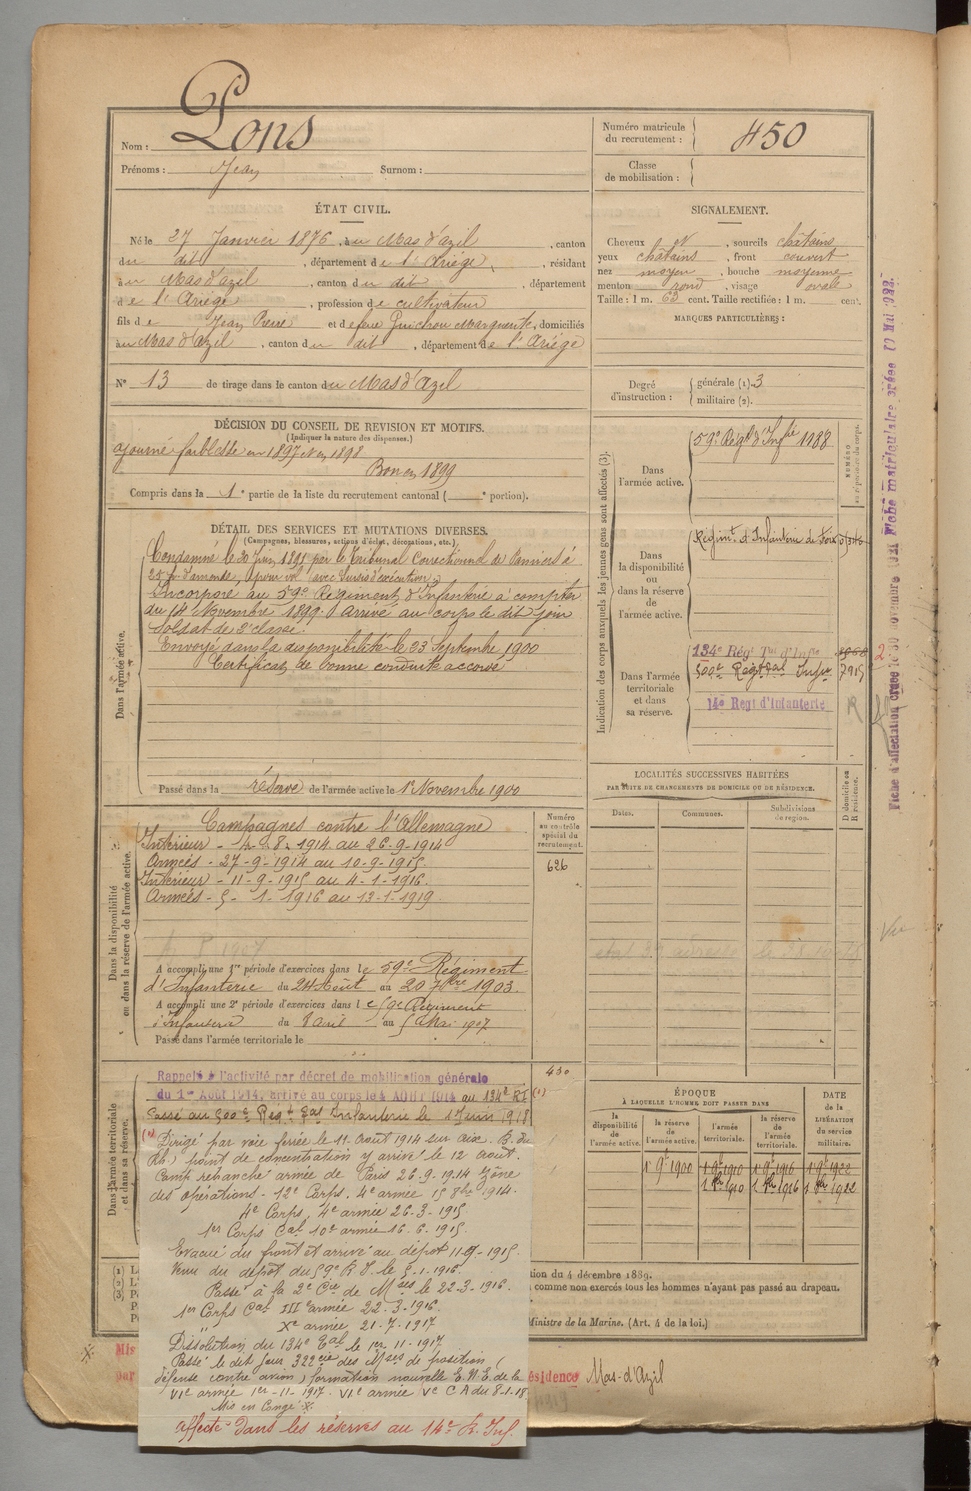 Nom : Pons
Prénoms : Jean Surnom :
Numéro matricule du recrutement : 450
Classe de mobilisation :
ÉTAT CIVIL.
Né le 27 Janvier 1876, à u Mas d'azil, canton
du dit, département de l'Ariége, résidant
à u Mas d'azil, canton du dit, département
de l'Ariége, profession de cultivateur
fils de Jean Pierre et de feue Guichou Marguerite, domiciliés
à u Mas d'Azil, canton du dit, département de l'Ariége
N° 13 de tirage dans le canton du Mas d'Azil
SIGNALEMENT.
Cheveux N, sourcils châtains
yeux châtains, front couvert
nez moyen, bouche moyenne
menton rond, visage ovale
Taille : 1 m. 62 cent. Taille rectifiée : 1 m. cent.
MARQUES PARTICULIÈRES :
Degré d'instruction : générale (1). 3
militaire (2).
DÉCISION DU CONSEIL DE REVISION ET MOTIFS.
(Indiquer la nature des dispenses.)
ajourné faiblesse en 1897 et en 1898
Bon en 1899
Compris dans la 1e partie de la liste du recrutement cantonal ( e portion).
DÉTAIL DES SERVICES ET MUTATIONS DIVERSES.
(Campagnes, blessures, actions d'éclat, décorations, etc.)
Dans l'armée active.
Condamné le 30 Juin 1895 par le Tribunal Correctionnel de Pamiers à
25 fr d'amende, pour vol (avec sursis d'exécution)
Incorporé au 59e Régiment d'Infanterie à compter
du 14 Novembre 1899. Arrivé au corps le dit jour
Soldat de 2e classe.
Envoyé dans la disponibilité le 23 Septembre 1900
Certificat de bonne conduite accordé
Passé dans la réserve de l'armée active le 1er Novembre 1900
Indication des corps auxquels les jeunes gens sont affectés (3).
NUMÉRO
au répertoire du corps.
Dans l'armée active.
59e Régt d'Infie 1988
Dans la disponibilité ou dans la réserve de l'armée active.
Régimt d'Infanterie de Foix
Dans l'armée territoriale et dans sa réserve.
134e Régt Tal d'Infie
500e Régt Tal Infie 7915
14e Régt d'Infanterie
R
2
LOCALITÉS SUCCESSIVES HABITÉES
PAR SUITE DE CHANGEMENTS DE DOMICILE OU DE RÉSIDENCE.
Dates. Communes. Subdivisions de région.
D domicile ou R résidence.
Dans la disponibilité
ou dans la réserve de l'armée active.
Numéro au contrôle spécial du recrutement.
626
Campagnes contre l'Allemagne
Intérieur - 4-8-1914 au 26-9-1914
Armées - 27-9-1914 au 10-9-1915
Intérieur - 11-9-1915 au 4-1-1916.
Armées - 5-1-1916 au 13-1-1919
A accompli une 1re période d'exercices dans le 59e Régiment
d'Infanterie du 24 Août au 20 7bre 1903.
A accompli une 2e période d'exercices dans le 59e Régiment
d'Infanterie du 8 avril au 5 Mai 1907
Passé dans l'armée territoriale le
Dans l'armée territoriale
et dans sa réserve.
430
Rappelé à l'activité par décret de mobilisation générale
du 1er Août 1914, arrivé au corps le 4 AOUT 1914 au 134e RI (1)
Passé au 500e Régt Tal Infanterie le 1er Juin 1918
(1) Dirigé par voie ferrée le 11 Août 1914 sur Aix. B. du
Rh, point de concentration y arrivé le 12 août.
Camp retranché armée de Paris 26.9.1914 Zône
des opérations - 12e Corps. 4e armée 15 8bre 1914.
4e Corps, 4e armée 26-3-1915
1er Corps Cal 10e armée 16.6.1915.
Evacué du front et arrivé au dépot 11-9-1915.
Venu du dépot du 59e R I. le 5-1-1916.
Passé à la 2e Cie de Mses le 22-3-1916.
1er Corps Cal III armée 22-3-1916.
" Xe armée 21-7-1917
Dissolution du 134e Tal le 1er 11-1917
Passé le dit jour 322e Cie des Mses de position (
défense contre avion) formation nouvelle E.N.E. de la
VIe armée 1er-11-1917. VIe armée Ve C A du 8-1-18.
Mis en Congé X.
Affecté dans les réserves au 14e R. Inf.
ÉPOQUE
À LAQUELLE L'HOMME DOIT PASSER DANS
la disponibilité de l'armée active.
la réserve de l'armée active.
l'armée territoriale.
la réserve de l'armée territoriale.
DATE de la LIBÉRATION du service militaire.
1er 9bre 1900 1er 9bre 1910 1er 9bre 1916 1er 9bre 1922
1 8bre 1910 1 8bre 1916 1 8bre 1922
tion du 4 décembre 1889.
comme non exercés tous les hommes n'ayant pas passé au drapeau.
Ministre de la Marine. (Art. 4 de la loi.)
X Mis
par
ésidence Mas-d'Azil
Vu